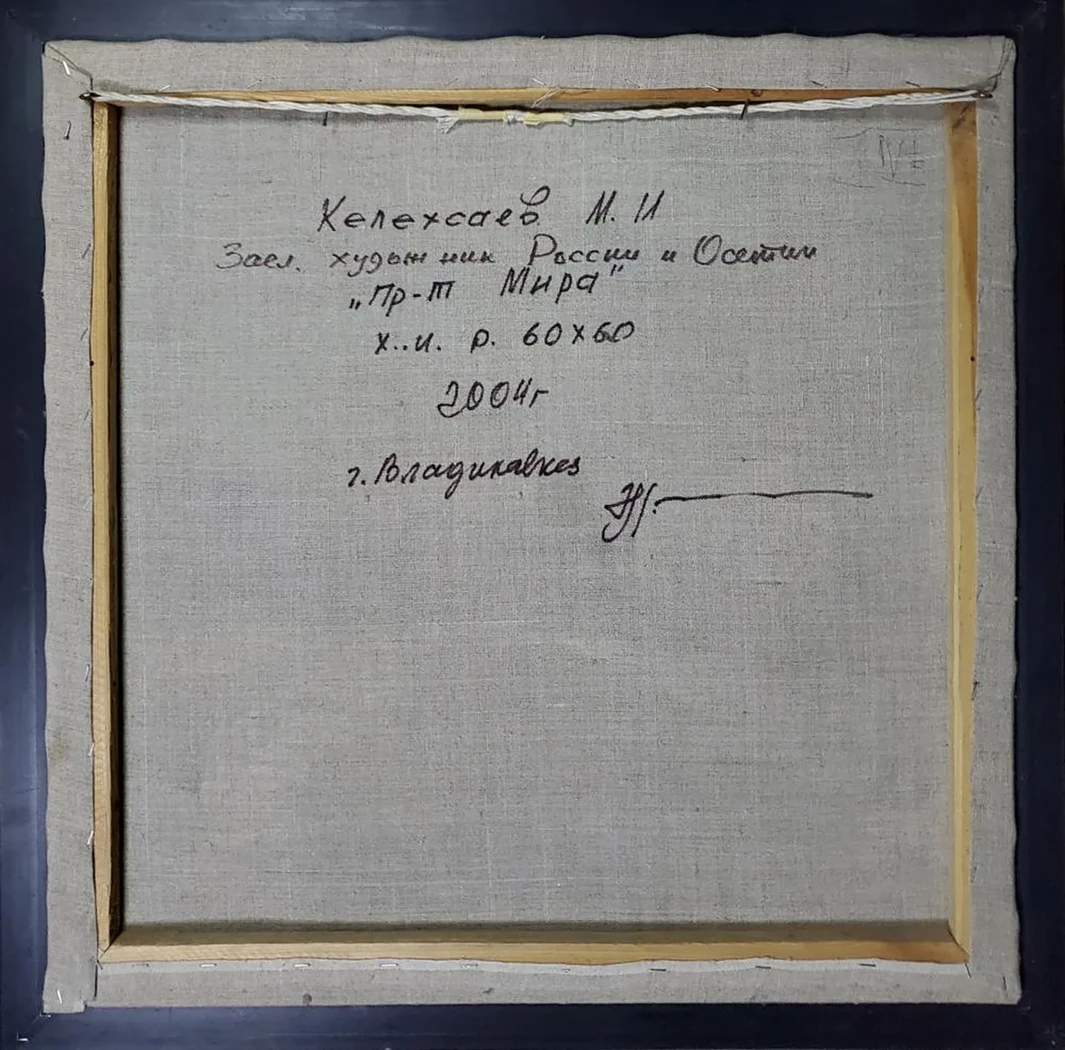 Келехсаев М. И
Засл. художник России и Осетии
„Пр-т Мира"
х..и. р. 60х60
2004г
г. Владикавказ